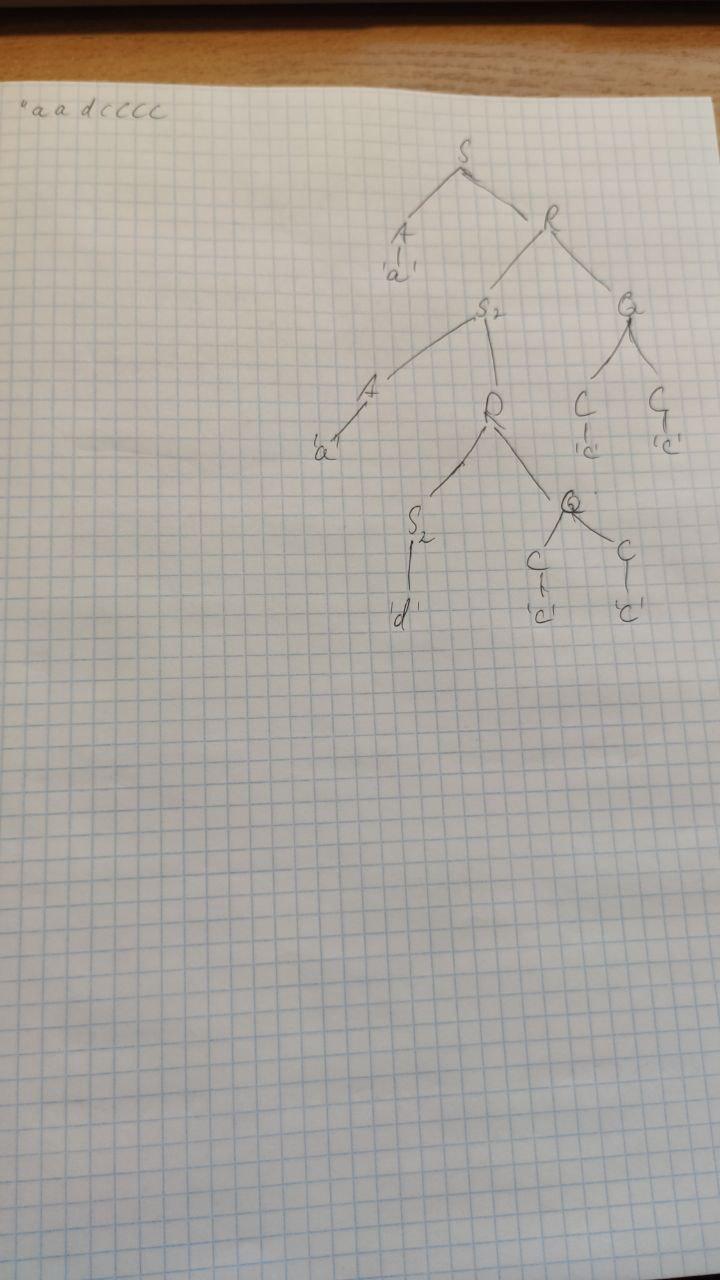 "aadcccc
S
A R
'a'
S₂ Q
A R C C
'a' 'c' 'c'
S₂ Q
C C
'd' 'c' 'c'